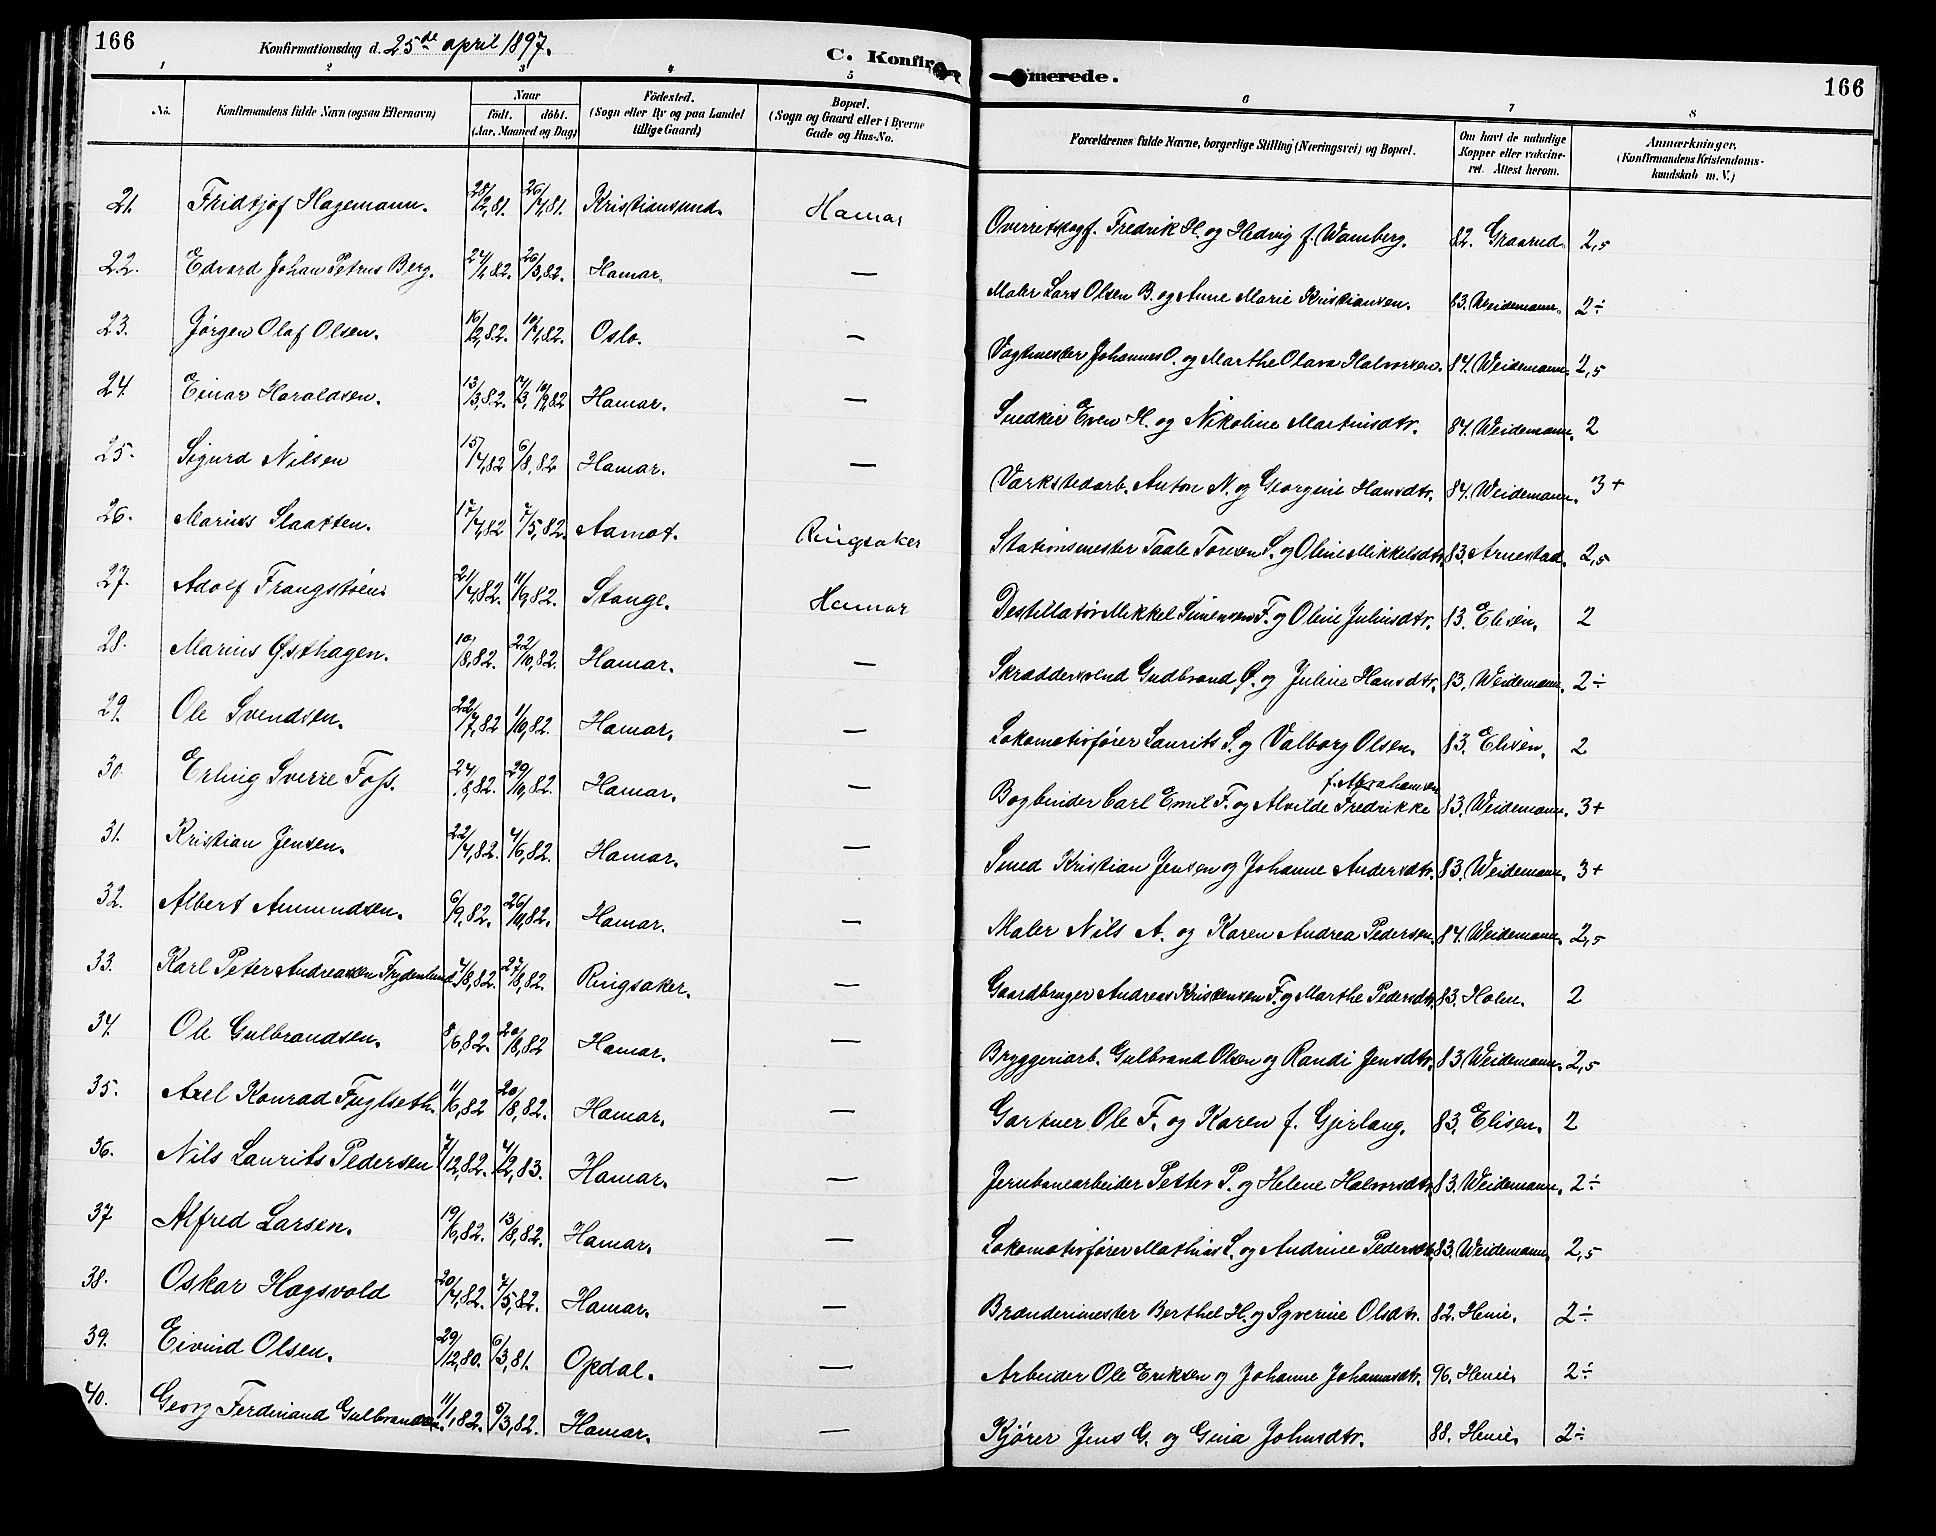 166
Konfirmationsdag d. 25de april 1897.
C. Konfirmerede.
166
1 2 3 4 5 6 7 8
No.
Konfirmandens fulde Navn (ogsaa Efternavn)
Naar
födt. döbt.
(Aar, Maaned og Dag)
Födested.
(Sogn eller By og paa Landet
tillige Gaard)
Bopæl.
(Sogn og Gaard eller i Byerne
Gade og Hus-No.
Forældrenes fulde Navne, borgerlige Stilling (Næringsvei) og Bopæl.
Om havt de naturlige
Kopper eller vakcine-
ret. Attest herom.
Anmærkninger.
(Konfirmandens Kristendoms-
kundskab m. V.)
21. Fridtjof Hagemann. 28/12,81. Kristiansund. Hamar Overretssagf. Fredrik H. og Hedvig f. Wamberg. 82. Graarud. 2,5
22. Edvard Johan Petrus Berg. 27/1,82. 26/3,82. Hamar. — Maler Lars Olsen B. og Anne Marie Kristiansen. 83. Weidemann. 2÷
23. Jörgen Olaf Olsen. 16/2,82. 10/4,82. Oslo. — Vagtmester Johannes O. og Marthe Olava Halvorsen. 84. Weidemann. 2,5
24. Einar Haraldsen. 13/3,82. Hamar. — Snedker Even H. og Nikoline Martinsdtr. 84. Weidemann. 2
25. Sigurd Nilsen 15/4,82 6/8,82 Hamar. — Værkstedarb. Anton N. og Georgine Hansdtr. 84. Weidemann. 3+
26. Marius Slaatten. 17/4,82 7/5,82. Aamot. Ringsaker Stationsmester Taale Toresen S. og Oline Mikkelsdtr. 83. Arnestad. 2,5
27. Adolf Frangstöen. 21/4,82. 11/6,82. Stange. Hamar Destillatör Mikkel Simensen F. og Oline Juliusdtr. 83. Elisen. 2
28. Marius Østhagen. 10/8,82. 22/10,82. Hamar. — Skræddersvend Gudbrand Ø. og Juline Hansdtr. 83. Weidemann. 2÷
29. Ole Svendsen. 22/7,82 1/10,82. Hamar. — Lokomotivförer Laurits S. og Valborg Olsen. 83. Elisen. 2
30. Erling Sverre Foss. 24/8,82. 29/10,82. Hamar. — Bogbinder Carl Emil F. og Alvilde Fredrikke f. Abrahamsen 83. Weidemann. 3+
31. Kristian Jensen. 22/4,82. 4/6,82. Hamar. — Smed Kristian Jensen og Johanne Andersdtr. 83. Weidemann. 3+
32. Albert Amundsen. 6/9,82. 26/10,82. Hamar. — Maler Nils A. og Karen Andrea Pedersen. 84. Weidemann. 2,5
33. Karl Peter Andreassen Frydenlund 4/8,82. 27/8,82. Ringsaker. — Gaardbruger Andreas Kristensen F. og Marthe Pedersdtr. 83. Holm. 2
34. Ole Gulbrandsen. 8/6,82. 20/8,82 Hamar. — Bryggeriarb. Gulbrand Olsen og Randi Jensdtr. 83 Weidemann. 2,5
35. Axel Konrad Fuglseth. 11/6,82 20/8,82. Hamar. — Gartner Ole F. og Karen f. Gjerlaug. 83. Elisen. 2
36. Nils Laurits Pedersen 7/12,82. 4/2,83. Hamar. — Jernbanearbeider Petter P. og Helene Halvorsdtr. 83. Weidemann. 2÷
37 Alfred Larsen. 19/6,82. 13/8,82. Hamar. — Lokomotivförer Mathias L. og Andrine Pedersdtr. 83. Weidemann. 2,5
38. Oskar Hagsvold 20/4,82. 7/5,82. Hamar. — Brænderimester Berthel H. og Syverine Olsdtr. 82. Henie. 2÷
39. Eivind Olsen. 29/12,80. 6/3,81. Opdal. — Arbeider Ole Eriksen og Johanne Johannsdtr. 96. Henie. 2÷
40. Georg Ferdinand Gulbrandsen. 11/1,82. 5/3,82. Hamar. — Kjörer Jens G. og Gina Johnsdtr. 88. Henie. 2÷